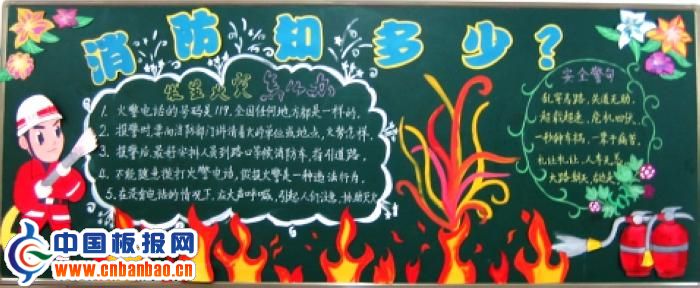 消防知多少?
发生火灾怎么办
1. 火警电话的号码是119,全国任何地方都是一样的.
2. 报警时,要向消防部门讲清着火的单位或地点,火势怎样.
3. 报警后,最好安排人员到路口等候消防车,指引道路.
4. 不能随意拨打火警电话,假报火警是一种违法行为.
5. 在没有电话的情况下,应大声呼喊,引起人们注意,协助灭火
安全警句
乱穿马路,
超载超速,危机四伏.
一秒钟车祸,一辈子痛苦.
中国板报网
www.cnbanbao.cn